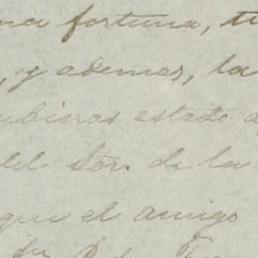 fortuna,
, y ademas, la
ubieras estado a
del Sor. de la
que el amigo